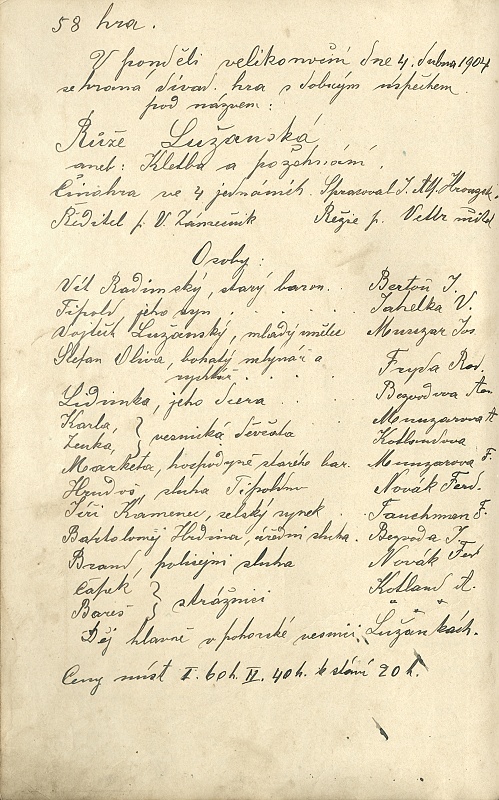 58 hra.
V pondělí velikonoční dne 4. dubna 1904
sehrána divad. hra s dobrým úspěchem
pod názvem:
Růže Lužanská
aneb: Kletba a požehnání.
Činohra ve 4 jednáních. Spracoval J. Alf. Hrouzek.
Ředitel p. V. Zámečník Režie p.
Osoby:
Vít Radimský, starý baron. . Bertoň J.
Tipold, jeho syn . . . . . Jahelka V.
Vojtěch Lužanský, mladý umělec Munzar Jos
Štefan Oliva, bohatý mlynář a
rychtář . . . Fryda Rod.
Lidunka, jeho dcera . . . Bezvodova An
Karla, } vesnická děvčata Munzarova A
Lenka, Kotlandova
Markéta, hospodyně starého bar. Munzarová F.
Hrudoš, sluha Tipoldův Novák Ferd.
Jiří Kamenec, selský synek . Tauchman F.
Bartoloměj Hrdina, úřední sluha. Bezvoda J.
Brand, policejní sluha Novák Ferd
Čapek } strážníci Kotland A.
Bareš " " "
Děj hlavně v pohorské vesnici Lužankách.
Ceny míst I. 60 h. II. 40 h. k stání 20 h.